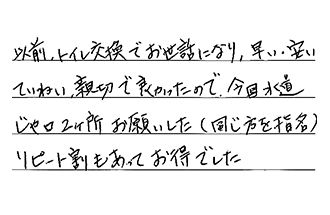 以前、トイレ交換でお世話になり、早い・安い
ていねい、親切で良かったので、今回水道
じゃ口2ヶ所お願いした(同じ方を指名)
リピート割もあってお得でした